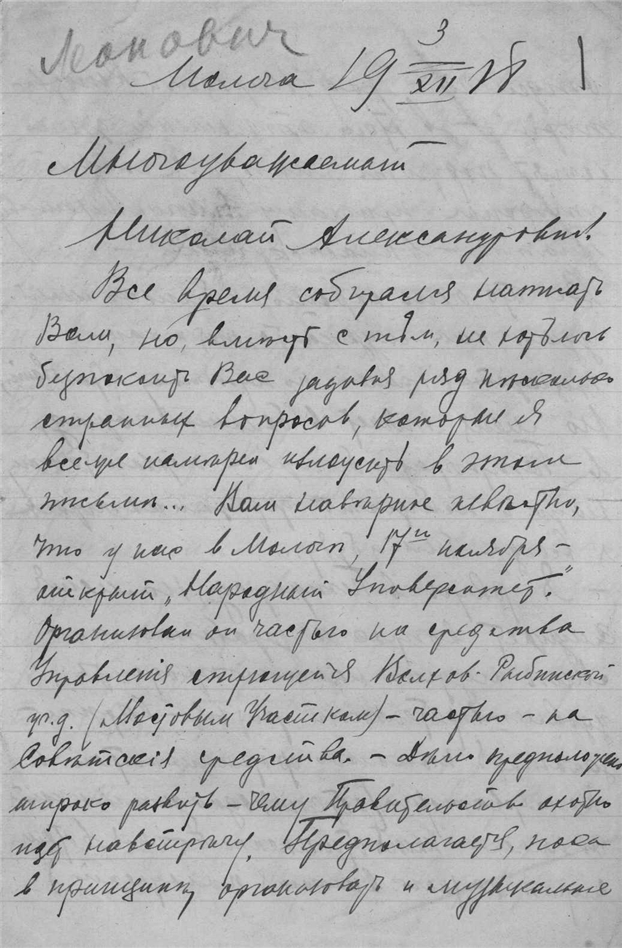 Леонович
Молога 19 3/XII 18 1
Многоуважаемый
Николай Александрович!
Все время собирался написать
Вам, но, вместѣ с тѣм, не хотѣлось
безпокоить Вас задавая ряд нѣсколько
странных вопросов, которые я
все же намѣрен изложить в этом
письмѣ... Вам навѣрное извѣстно,
что у нас в Мологѣ, 17го ноября –
открыт „Народный Университет."
Организован он частью на средства
Управленiя строющейся Волхов-Рыбинской
ж.д. (Мостовым Участком) – частью – на
Совѣтскiя средства. – Дѣло предположено
широко развить – чему Правительство охотно
идет навстрѣчу. Предполагается, пока
в принципѣ, организовать и музыкальные